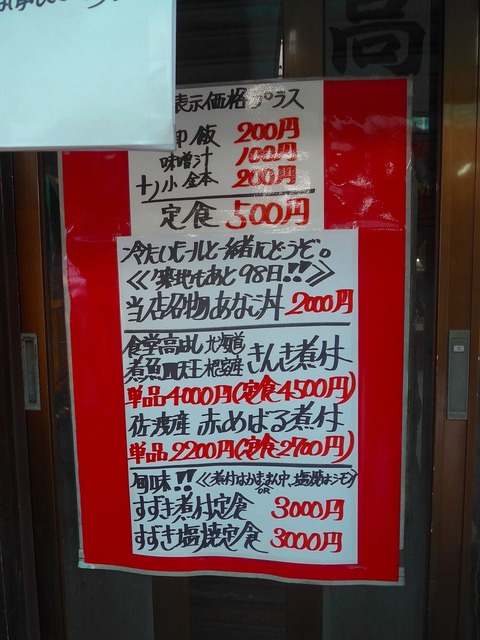 高
表示価格プラス
御飯 200円
味噌汁 100円
十)小鉢 200円
定食 500円
冷たいビールと一緒にどうぞ。
≪築地もあと98日!!≫
当店名物あなご丼 2000円
食堂高はし 北海道
煮魚四天王 根室産 きんき煮付
単品4000円(定食4500円)
佐渡産 赤めばる煮付
単品2200円(定食2700円)
旬味!! ≪煮付はおまかせ
OR
すずき煮付定食 3000円
すずき塩焼定食 3000円